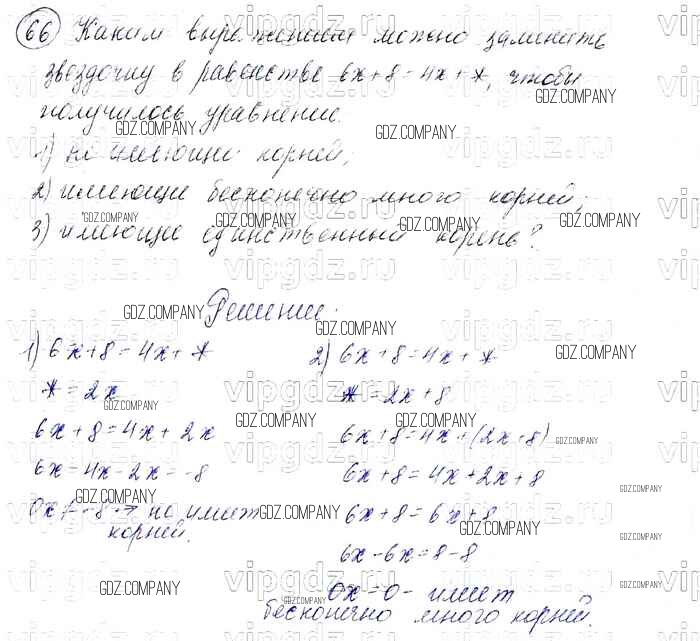 66 Каким выражением можно заменить
звездочку в равенстве 6x+8=4x+*, чтобы
получилось уравнение.
1) не имеющие корней;
2) имеющие бесконечно много корней;
3) имеющее единственный корень?
Решение:
1) 6x+8=4x+*
*=2x
6x+8=4x+2x
6x-4x-2x=-8
0x≠-8→ не имеет
корней.
2) 6x+8=4x+*
*=2x+8
6x+8=4x+(2x+8)
6x+8=4x+2x+8
6x+8=6x+8
6x-6x=8-8
0x=0- имеет
бесконечно много корней.
GDZ.COMPANY
vipgdz.ru